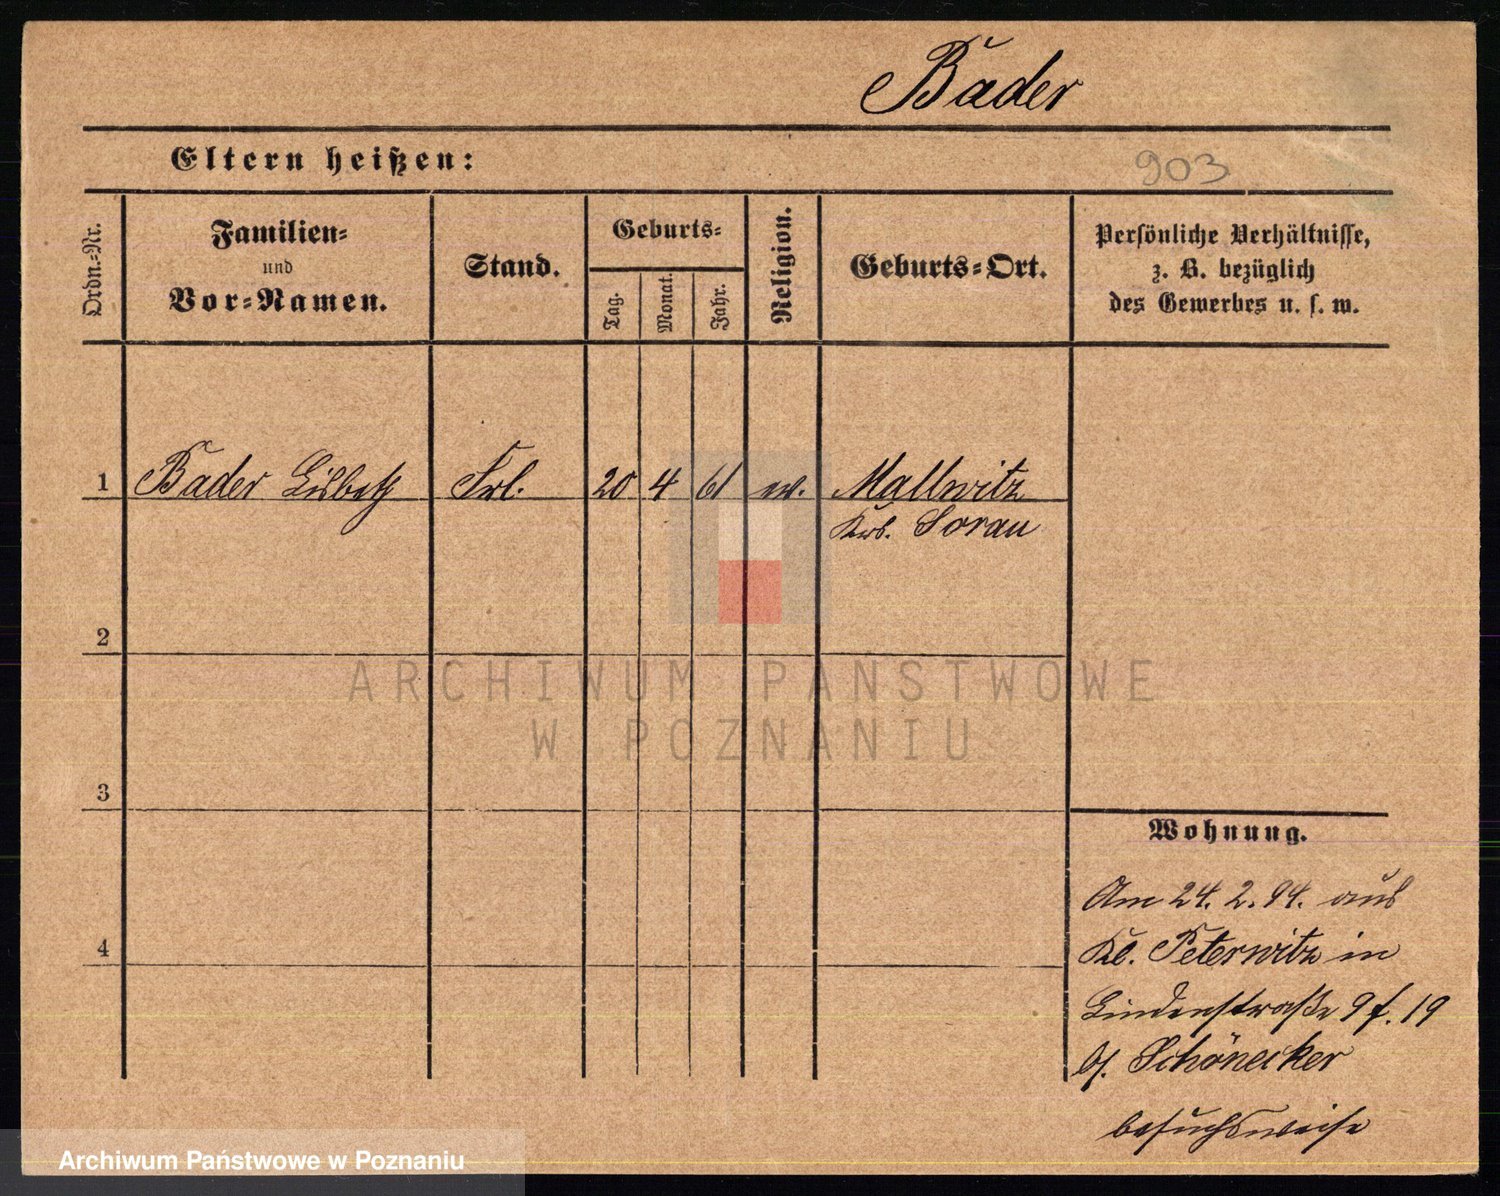 Bader
Eltern heißen:
903
Ordn.-Nr.
Familien-
und
Vor-Namen.
Stand.
Geburts-
Tag.
Monat.
Jahr.
Religion.
Geburts-Ort.
Persönliche Verhältnisse,
z. B. bezüglich
des Gewerbes u. s. w.
1 Bader Lisbeth Frl. 20 4 61 ev. Mallwitz
Krs. Sorau
2
ARCHIWUM PAŃSTWOWE
W POZNANIU
3
Wohnung.
Am 24. 2. 94. aus
4
Kl. Peterwitz in
Lindenstraße 9 f. 19
b/. Schönecker
besuchsweise
Archiwum Państwowe w Poznaniu